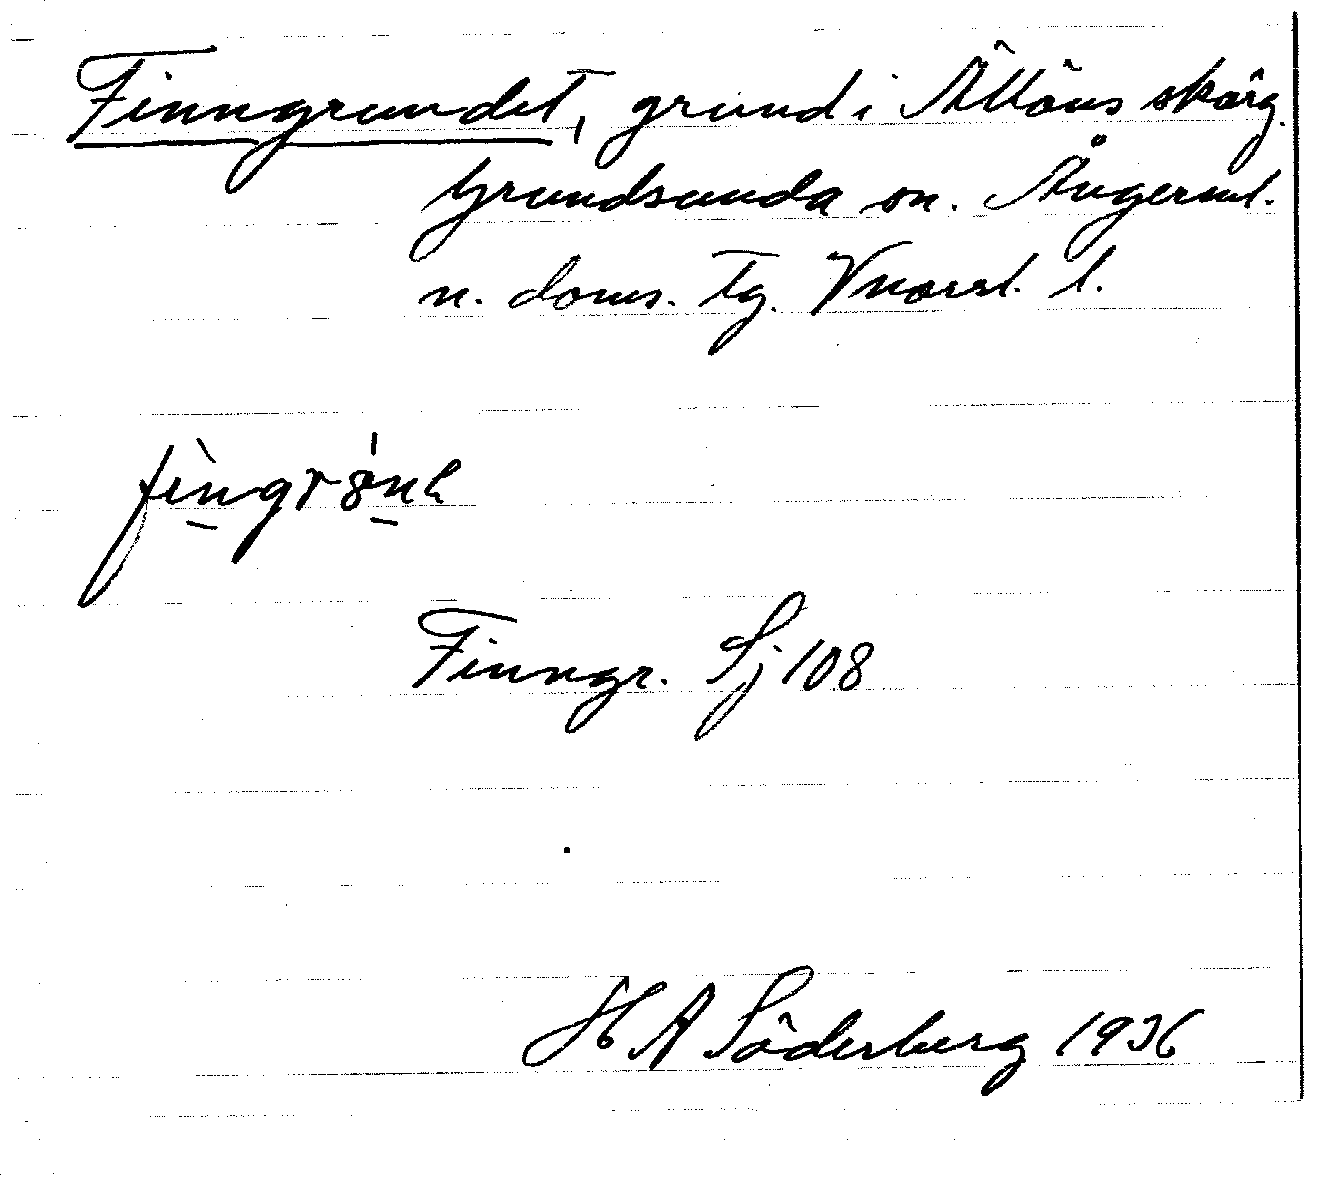 Finngrundet, grund i Ällöns skärg.
Grundsunda sn. Ångerml.
n. doms. tg. Västernorrl. l.
Finngr. Sj 108
H A Söderberg 1936